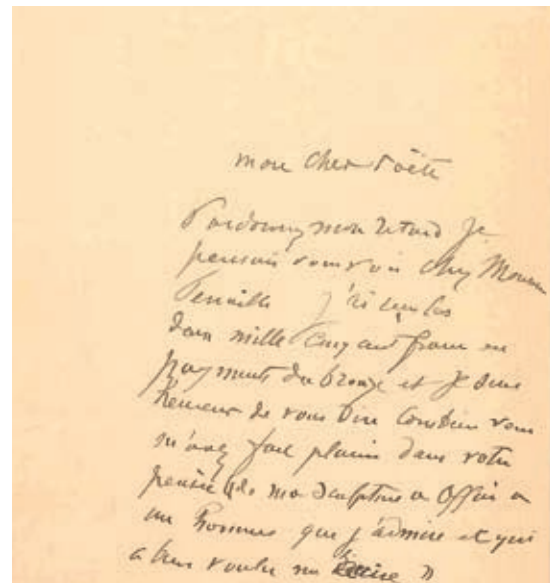 mon cher Poëte
Pardonnez mon retard je
pensais vous voir chez Monsieur
Fenaille j'ai reçu les
deux mille cinq cent francs en
payment du bronze et je suis
heureux de vous dire combien vous
m'avez fait plaisir dans votre
pensée de ma sculpture a offrir a
un homme que j'admire et qui
a bien voulu